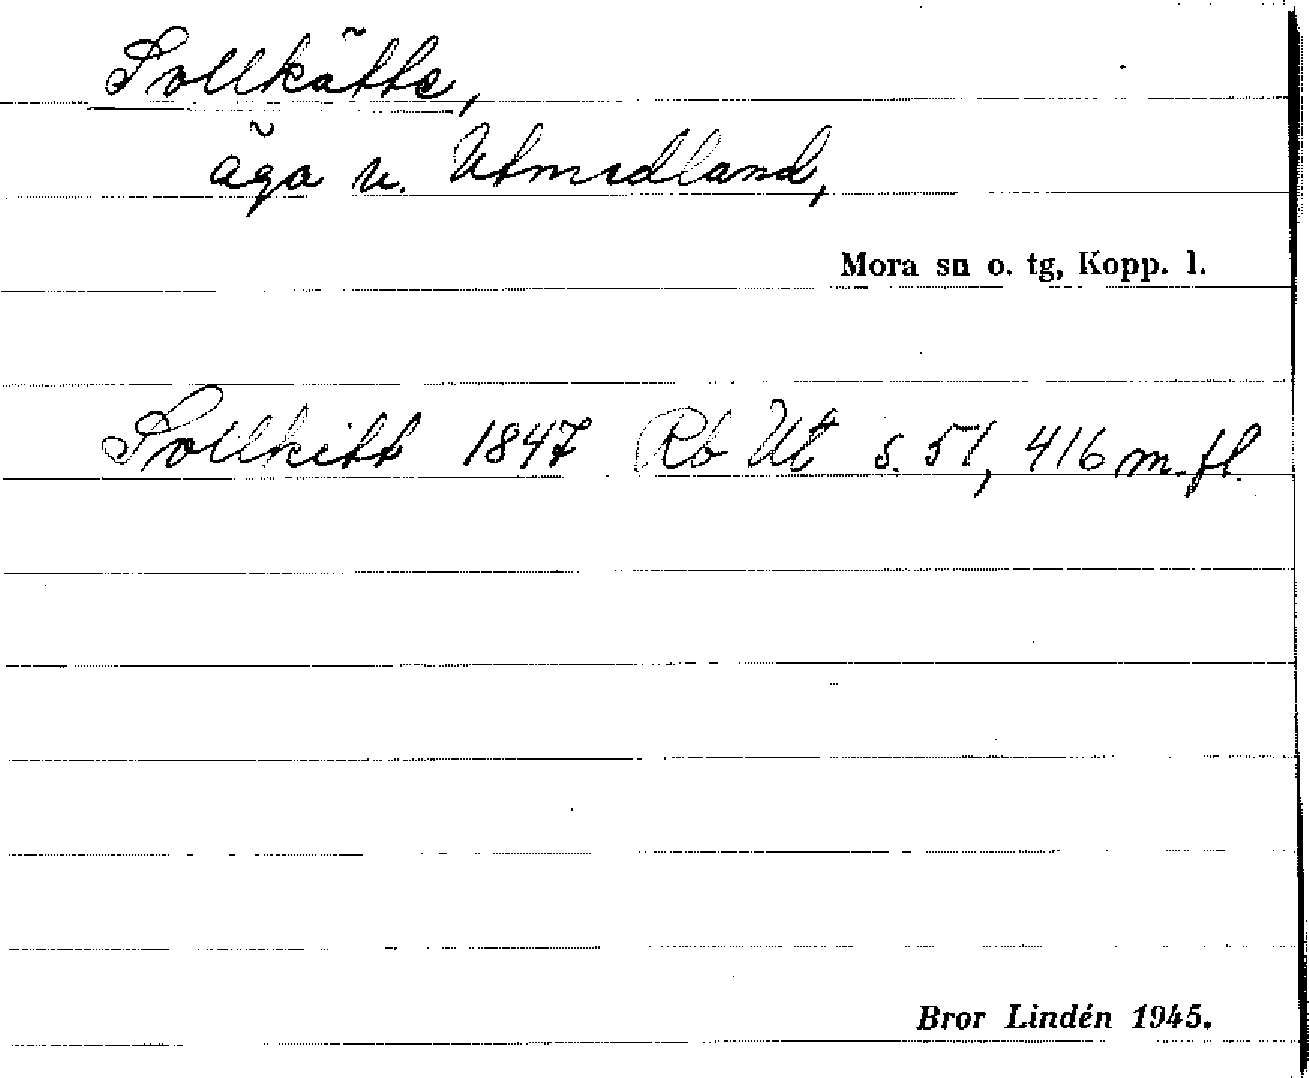 Sollkätte,
äga v. Utmedland,
Mora sn o. tg, Kopp. l.
Sollkitt 1847 Rb Ut s. 51, 416 m. fl.
Bror Lindén 1945.